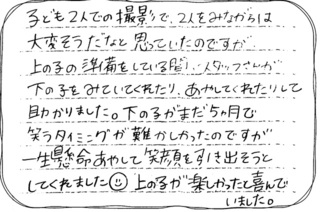 子ども2人での撮影で、2人をみながらは
大変そうだなと思っていたのですが
上の子の準備をしている間、スタッフさんが
下の子をみていてくれたり、あやしてくれたりして
助かりました。下の子がまだ5ヶ月で
笑うタイミングが難かしかったのですが
一生懸命あやして笑顔を引き出そうと
してくれました☺ 上の子が楽しかったと喜んで
いました。